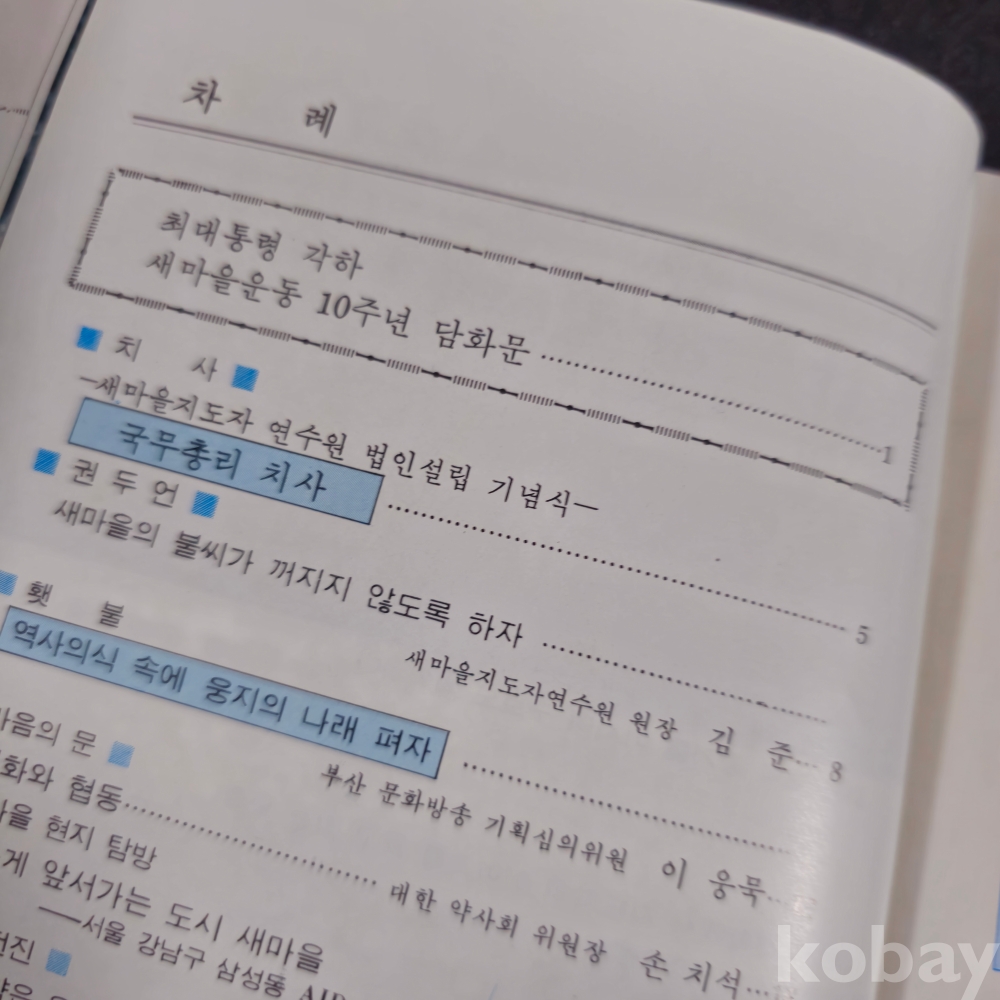 차 례
최대통령 각하
새마을운동 10주년 담화문 ........ 1
■ 치 사 ■
—새마을지도자 연수원 법인설립 기념식—
국무총리 치사 ........ 5
■ 권두언 ■
새마을의 불씨가 꺼지지 않도록 하자 ........
새마을지도자연수원 원장 김 준... 8
■ 횃 불
역사의식 속에 웅지의 나래 펴자 ........
부산 문화방송 기획심의위원 이 웅묵...
마음의 문 ■
화와 협동 ........ 대한 약사회 위원장 손 치석...
을 현지 탐방
게 앞서가는 도시 새마을
——서울 강남구 삼성동
전진 ■
kobay